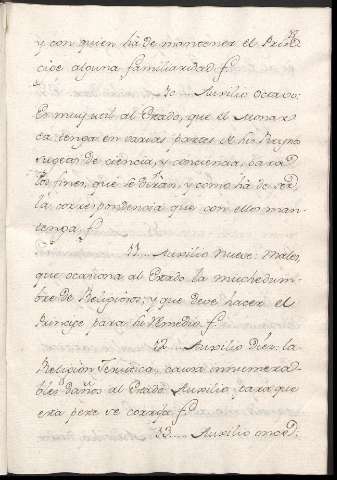 y con quien hà de mantener el Prin-
cipe alguna familiaridad. f.
10.... Auxilio Octavo:
Es muy util al Estado, que el Monar
ca tenga en varias partes de su Reyno
sugetos de ciencia, y conciencia, para
los fines, que se diràn, y como hà de ser
la correspondencia que con ellos man-
tenga. f.
11.... Auxilio Nueve: Males,
que ocasiona al Estado la muchedum-
bre de Religiosos; y que deve hacer el
Principe para su remedio. f.
12.... Auxilio Diez: la
Religion Jesuitica, causa innumera-
bles daños al Estado. Auxilio para que
esta peste se corrija. f.
13.... Auxilio once: